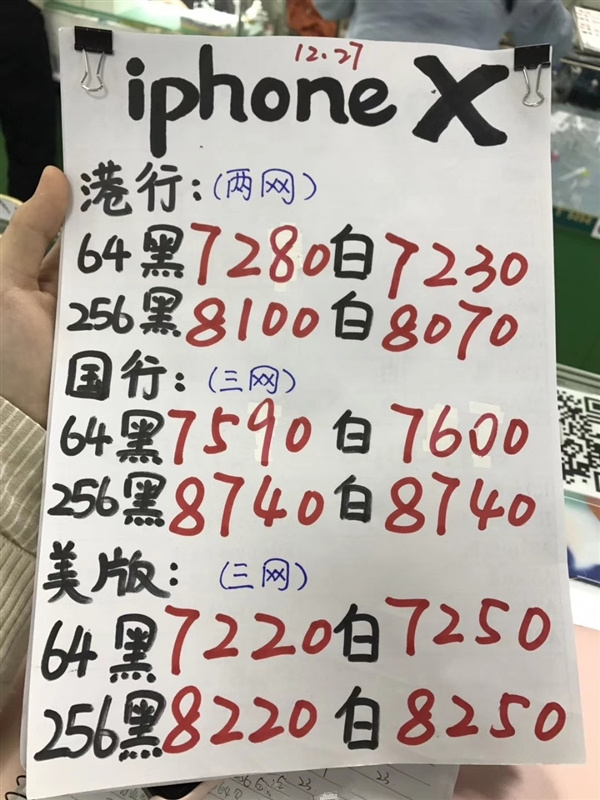 12.27
iphone X
港行:(两网)
64黑7280白7230
256黑8100白8070
国行:(三网)
64黑7590白7600
256黑8740白8740
美版:(三网)
64黑7220白7250
256黑8220白8250